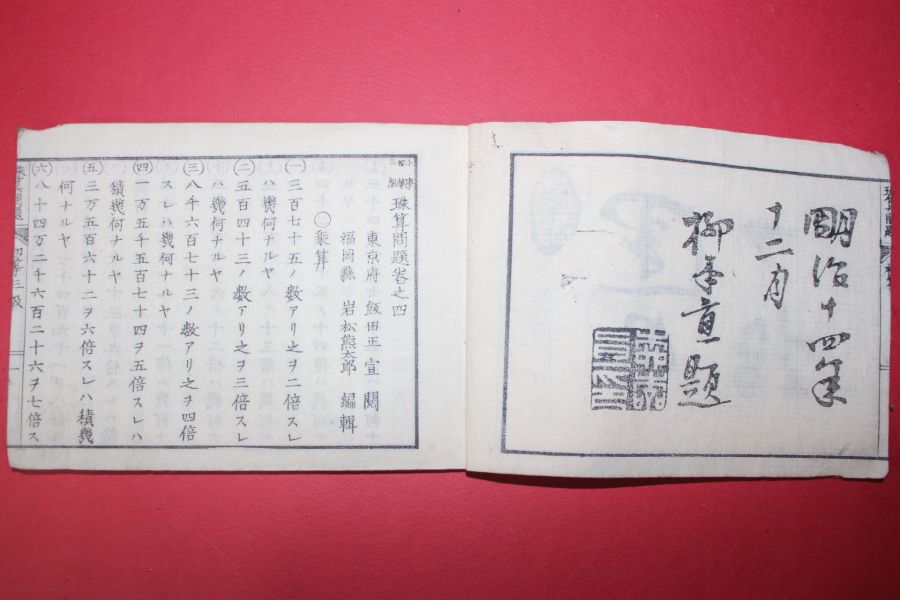 明治十四年
十二月
題
珠算問題巻之四
東京府 飯田正宣 閲
福岡縣 岩松熊太郎 編輯
㊀乗算
(一)三百七十五ノ數アリ之ヲ二倍スレ
ハ幾何ナルヤ
(二)五百四十三ノ數アリ之ヲ三倍スレ
ハ幾何ナルヤ
(三)八千六百七十三ノ數アリ之ヲ四倍
スレハ幾何ナルヤ
(四)一万五千五百七十四ヲ五倍スレハ
積幾何ナルヤ
(五)三万五百六十二ヲ六倍スレハ積幾
何ナルヤ
(六)八十四万二千六百二十六ヲ七倍ス
初等三級